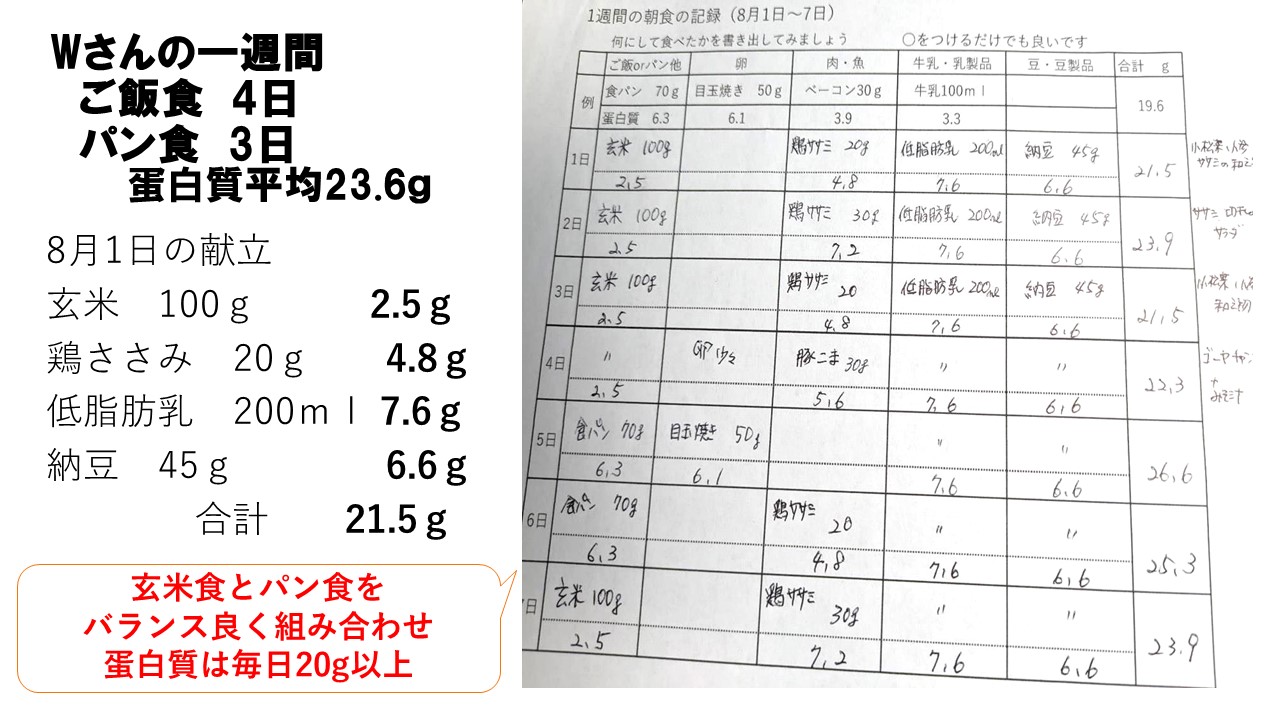 Wさんの一週間
ご飯食 4日
パン食 3日
蛋白質平均23.6g
8月1日の献立
玄米 100ｇ 2.5ｇ
鶏ささみ 20ｇ 4.8ｇ
低脂肪乳 200ｍｌ 7.6ｇ
納豆 45ｇ 6.6ｇ
合計 21.5ｇ
玄米食とパン食を
バランス良く組み合わせ
蛋白質は毎日20g以上
1週間の朝食の記録（8月1日～7日）
何にして食べたかを書き出してみましょう ○をつけるだけでも良いです
ご飯orパン他 卵 肉・魚 牛乳・乳製品 豆・豆製品 合計 g
例 食パン 70g 目玉焼き 50g ベーコン30g 牛乳100ml
蛋白質 6.3 6.1 3.9 3.3 19.6
1日 玄米 100g 鶏ササミ 20g 低脂肪乳 200ml 納豆 45g
2.5 4.8 7.6 6.6 21.5
小松菜
ササミの和え
2日 玄米 100g 鶏ササミ 30g 低脂肪乳 200ml 納豆 45g
2.5 7.2 7.6 6.6 23.9
ササミ
サラダ
3日 玄米 100g 鶏ササミ 20 低脂肪乳 200ml 納豆 45g
2.5 4.8 7.6 6.6 21.5
小松菜
和え物
4日 〃 卵 少々 豚こま 30g 〃 〃
2.5 5.6 7.6 6.6 22.3
ゴーヤチャン
+
5日 食パン 70g 目玉焼き 50g 〃 〃
6.3 6.1 7.6 6.6 26.6
6日 食パン 70g 鶏ササミ 20 〃 〃
6.3 4.8 7.6 6.6 25.3
日 玄米 100g 鶏ササミ 30g 〃 〃
2.5 7.2 7.6 6.6 23.9